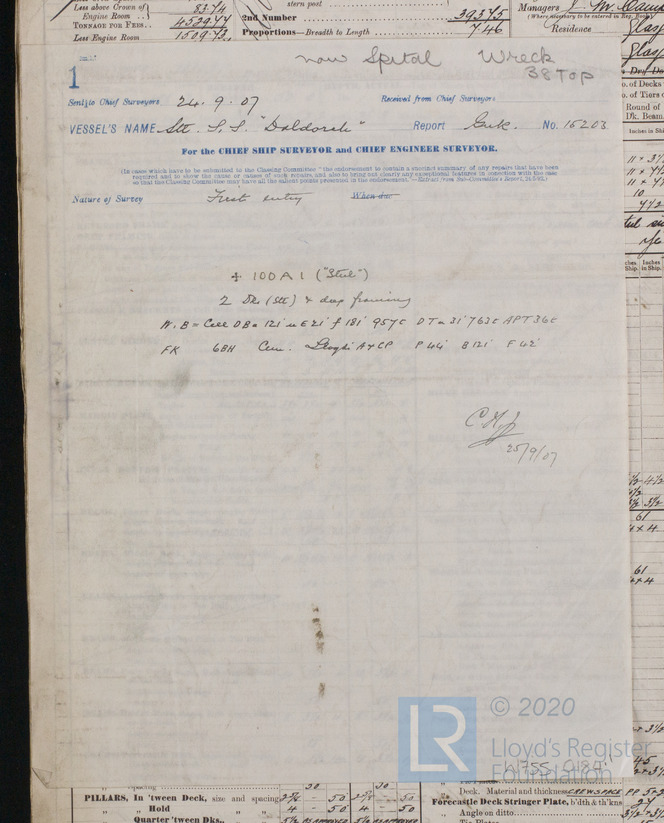 Less above Crown of
Engine Room .. 83.74
TONNAGE FOR FEES..
Less Engine Room
stern post
2nd Number 39375
Proportions—Breadth to Length 7.46
Managers
(Where necessary to be entered in Reg. Book)
Residence
now Spital Wreck
38 Top
1
Sent to Chief Surveyors 24.9.07 Received from Chief Surveyors
VESSEL'S NAME Stl. S.S. "Daldorch" Report Gck. No. 15203
For the CHIEF SHIP SURVEYOR and CHIEF ENGINEER SURVEYOR.
(In cases which have to be submitted to the Classing Committee " the endorsement to contain a succinct summary of any repairs that have been
required and to show the cause or causes of such repairs, and also to bring out clearly any exceptional features in connection with the case
so that the Classing Committee may have all the salient points presented in the endorsement."—Extract from Sub-Committee's Report,
Nature of Survey First entry When due
+ 100 A 1 ("Steel")
2 Dks (Stl) & deep framing
W.B = Cell DB a 121' u E 21' f 181' 957t DTa 31' 763t APT 36t
FK 6BH Cem. Lloyds A & CP P 44' B 121' F 42'
25/9/07
© 2020
LR
Lloyd's Register
Foundation
W755-0184
PILLARS, In 'tween Deck, size and spacing
Hold 4 - 50 4 - 50
Quarter 'tween Dks.,
Deck. Material and thickness
Forecastle Deck Stringer Plate, b'dth & th'kns
Angle on ditto